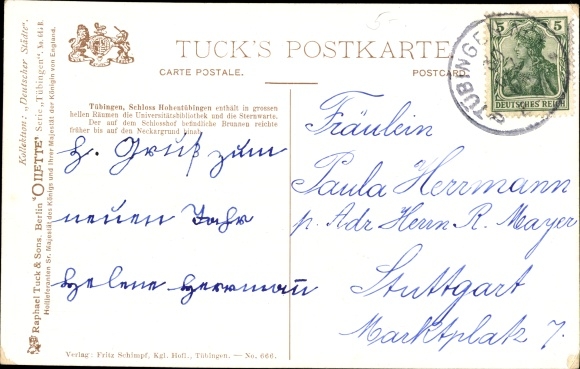 TUCK'S POSTKARTE
CARTE POSTALE.
POSTCARD
Tübingen, Schloss Hohentübingen enthält in grossen
hellen Räumen die Universitätsbibliothek und die Sternwarte.
Der auf dem Schlosshof befindliche Brunnen reichte
früher bis auf den Neckargrund hinab.
h. Gruß zum
neuen Jahr
Helene Herrmann
Verlag: Fritz Schimpf, Kgl. Hofl., Tübingen. — No. 666.
Kollektion: „Deutscher Städte".
Raphael Tuck & Sons, Berlin "OILETTE" Serie „Tübingen"
Hoflieferanten Sr. Majestät des Königs und Ihrer Majestät der Königin von England.
TÜBINGEN
5 5
DEUTSCHES REICH
Fräulein
Paula Herrmann
p. Adr Herrn R. Mayer
Stuttgart
Marktplatz 7.